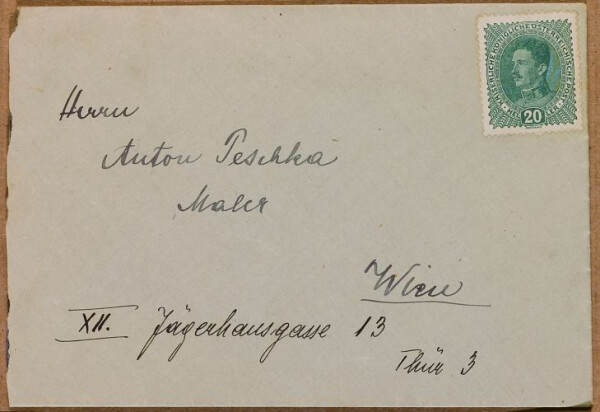 KAISERLICHE KÖNIGLICHE ÖSTERREICHISCHE POST
20
Herrn
Anton Peschka
Maler
Wien
XII. Jägerhausgasse 13
Thür 3